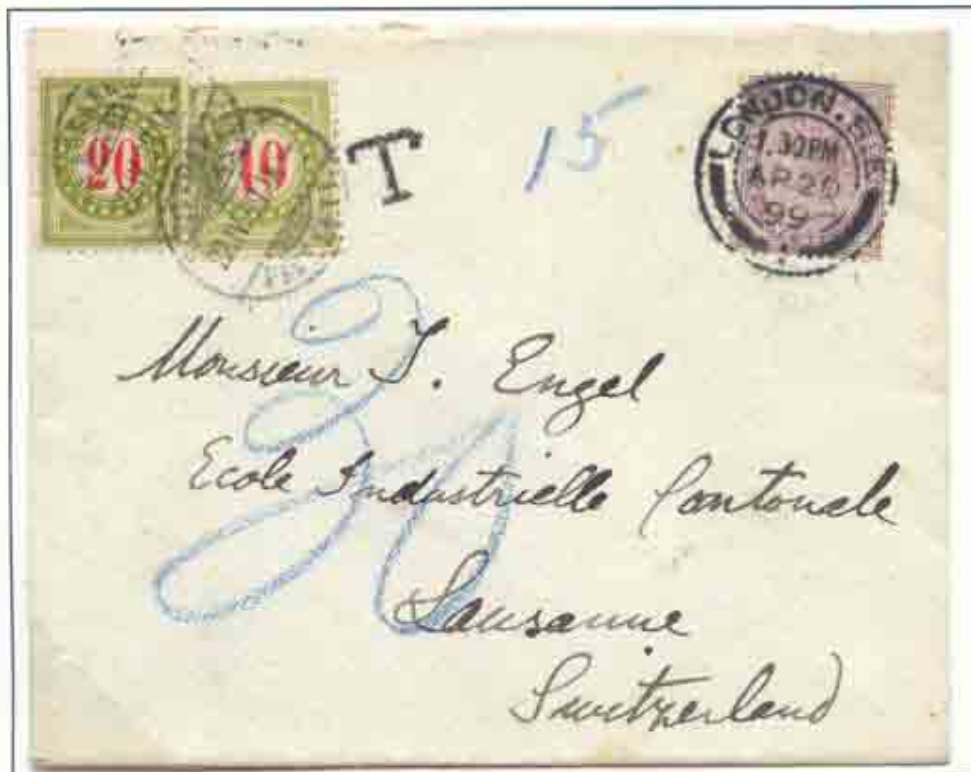 20 10 T 15
LONDON. S.E.
1.30PM
AP 26
99
30
Monsieur J. Engel
Ecole Industrielle Cantonale
Lausanne
Switzerland